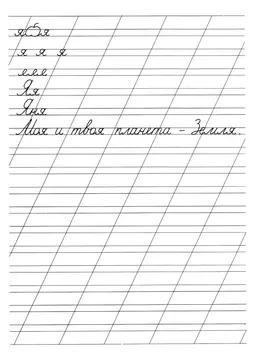 я я
я я я
Яя
Яня
Моя и твоя планета – Земля.